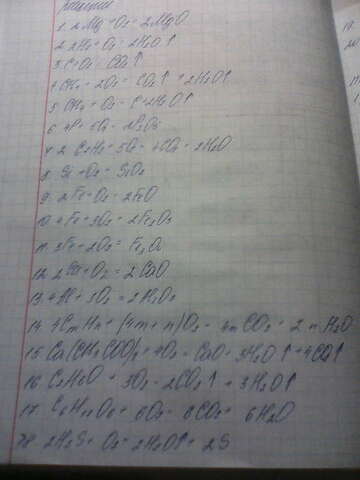 Решение
1. 2Mg + O2 = 2MgO
2. 2H2 + O2 = 2H2O↑
3. C + O2 = CO2↑
4. CH4 + 2O2 = CO2↑ + 2H2O↑
5. CH4 + O2 = C + 2H2O↑
6. 4P + 5O2 = 2P2O5
7. 2C2H2 + 5O2 = 4CO2 + 2H2O
8. Si + O2 = SiO2
9. 2Fe + O2 = 2FeO
10. 4Fe + 3O2 = 2Fe2O3
11. 3Fe + 2O2 = Fe3O4
12. 2Ca + O2 = 2CaO
13. 4Al + 3O2 = 2Al2O3
14. 4CmHn + (4m + n)O2 = 4mCO2 + 2nH2O
15 Ca(CH3COO)2 + 4O2 = CaO + 3H2O↑ + 4CO2↑
16 C2H6O + 3O2 = 2CO2↑ + 3H2O↑
17. C6H12O6 + 6O2 = 6CO2 + 6H2O
18. 2H2S + O2 = 2H2O↑ + 2S
19.
20